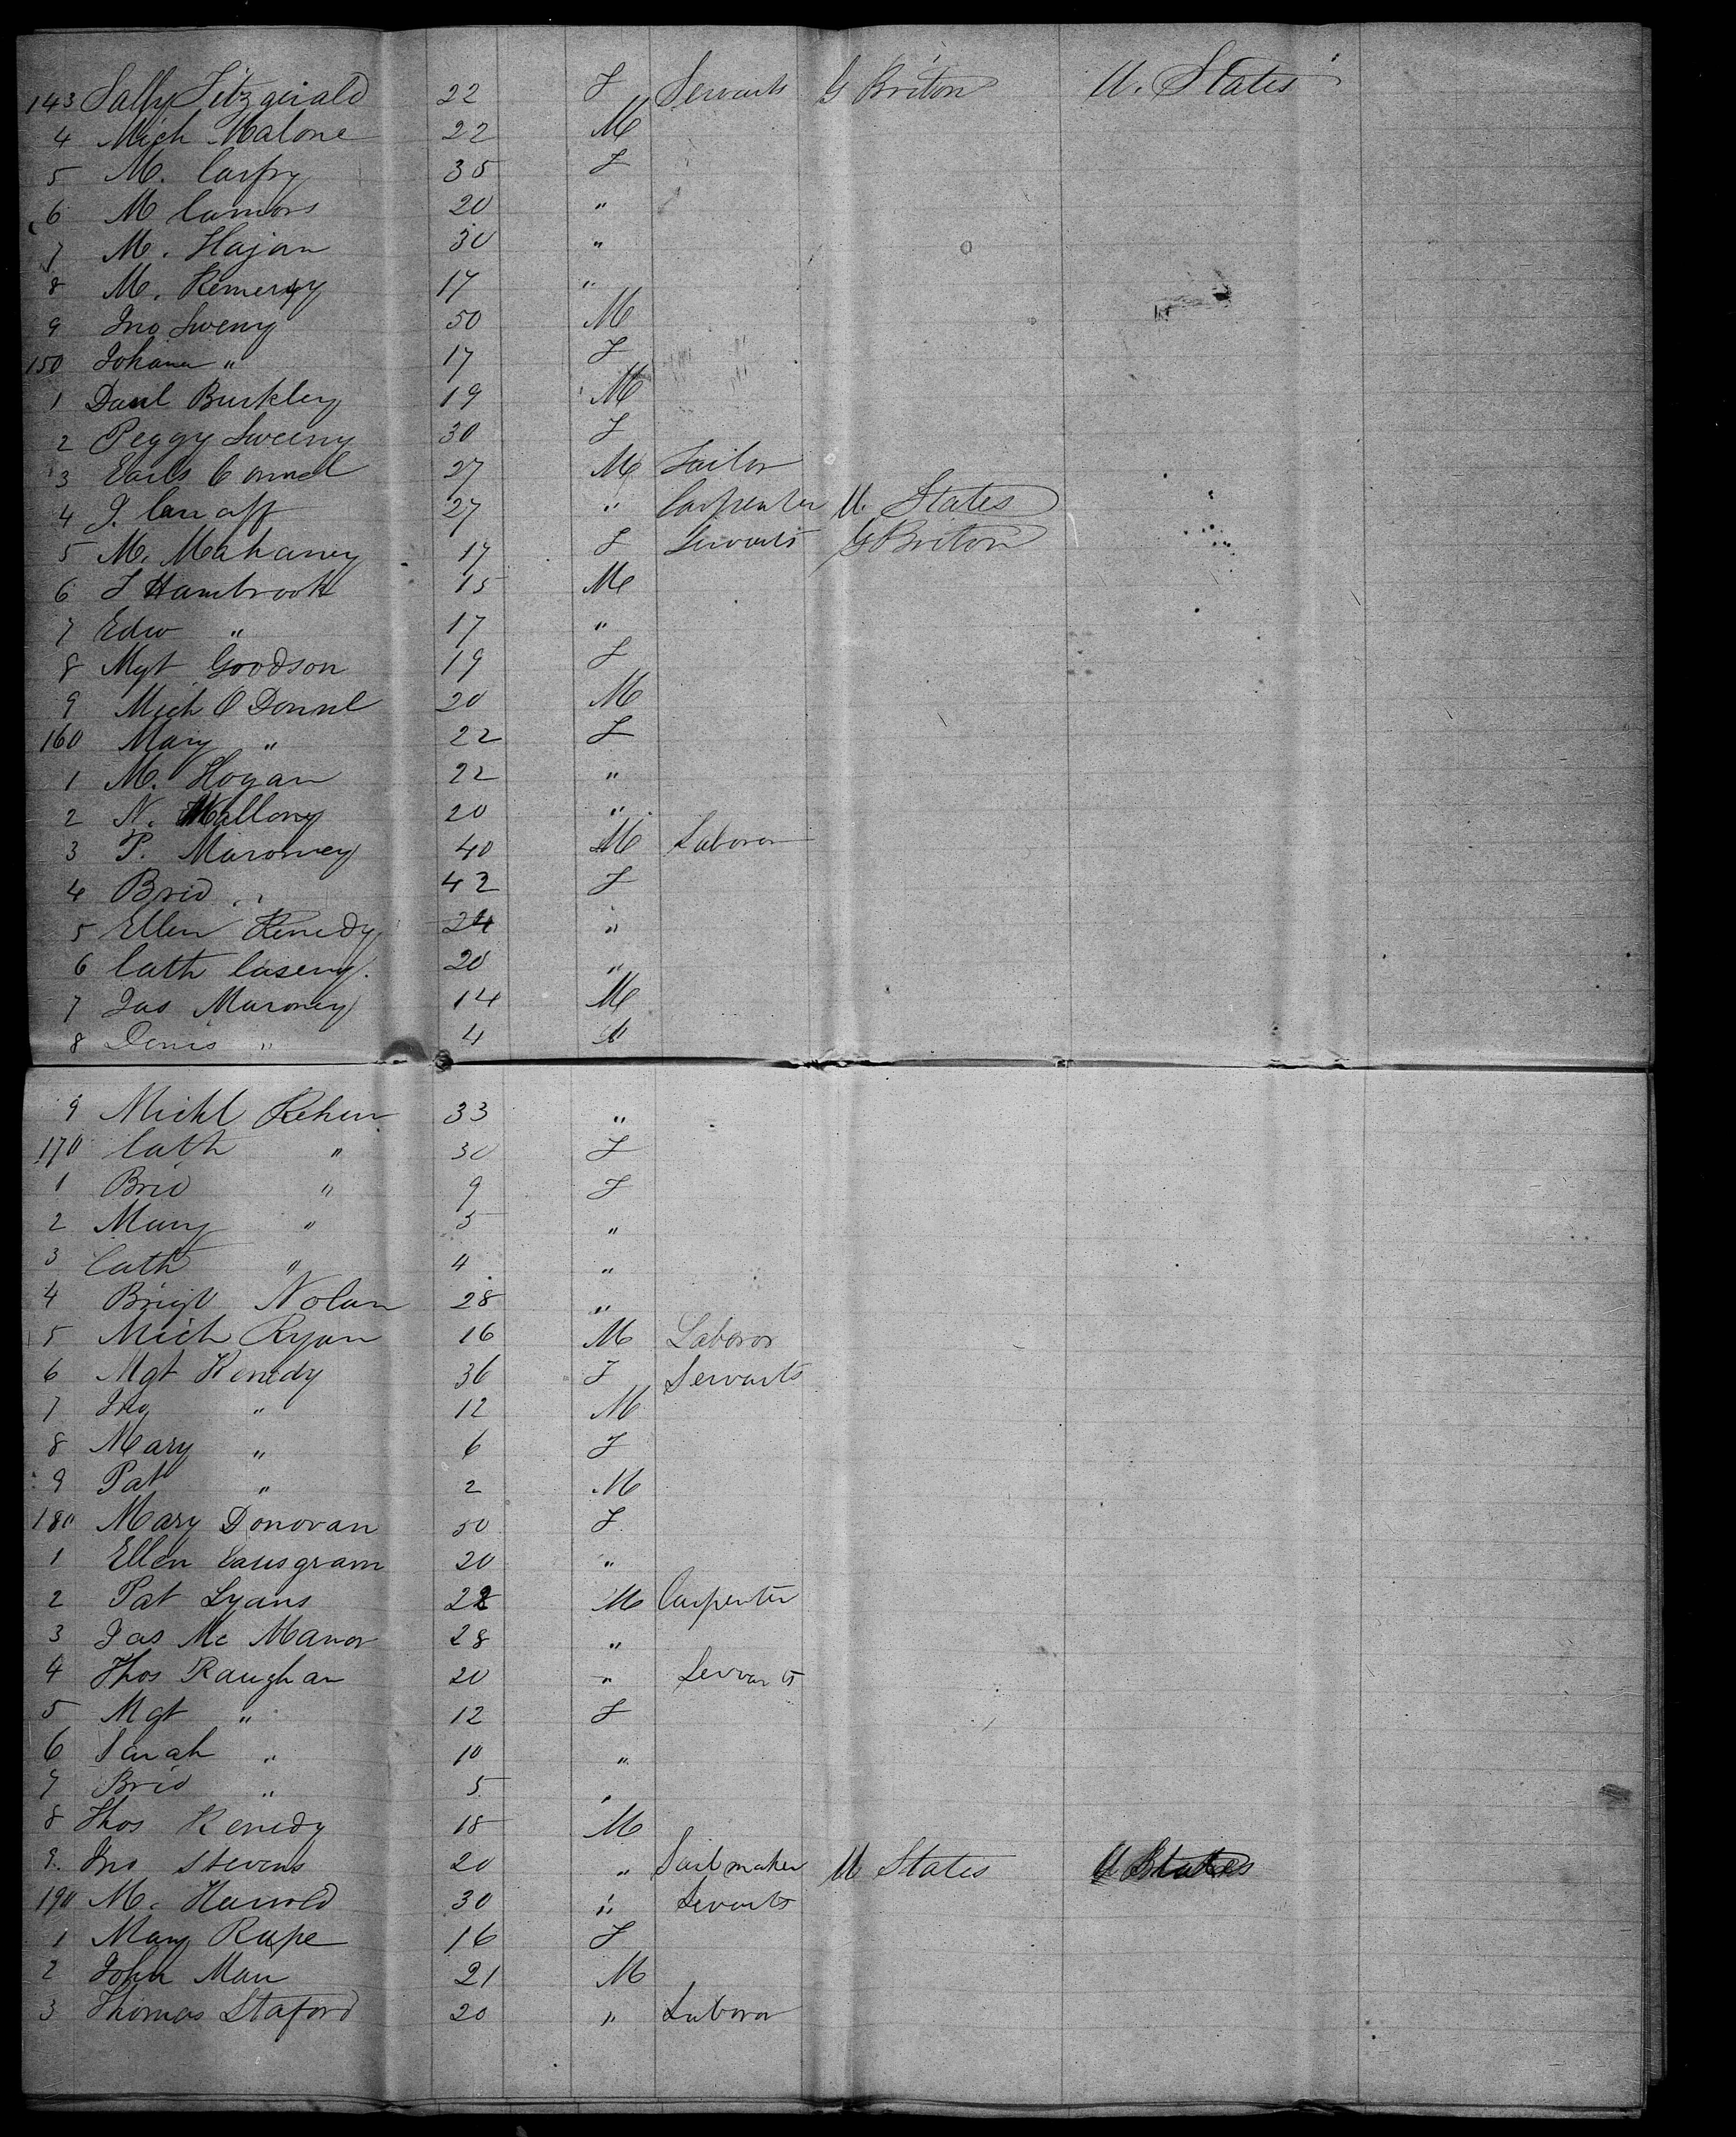 143 Sally Fitzgerald 22 F Servants G Briton U. States
4 Mich Malone 22 M
5 M. Carpy 35 F
6 M Connors 20 "
7 M. Hajan 30 "
8 M. 17 "
9 Jno Sweny 50 M
150 Johana " 17 F
1 Danl Burkley 19 M
2 Peggy Sweeny 30 F
3 Earls Connel 27 M Sailor
4 J. 27 " Carpenter U. States
5 M. Mahaney 17 F Servants G Briton
6 J Hambrook 15 M
7 Edw " 17 "
8 Mgt Goodson 19 F
9 Mich O Donnel 20 M
160 Mary " 22 F
1 M. Hogan 22 "
2 N. Mallony 20 "
3 P. Maroney 40 M Laboror
4 Brid " 42 F
5 Ellen Kenedy 24 "
6 Cath Caseny. 20 "
7 Jas Maroney 14 M
8 Denis " 4 "
9 Michl Kehen 33 "
170 Cath " 30 F
1 Brid " 9 F
2 Mary " 5 "
3 Cath " 4 "
4 Brigt Nolan 28 "
5 Mich Ryan 16 M Laboror
6 Mgt Kenedy 36 F Servants
7 Jno " 12 M
8 Mary " 6 F
9 Pat " 2 M
180 Mary Donovan 50 F
1 Ellen Causgram 20 "
2 Pat Lyans 22 M Carpenter
3 Jas Mc Manor 28 "
4 Thos Raughan 20 " Servants
5 Mgt " 12 F
6 Sarah " 10 "
7 Brid " 5 "
8 Thos Kenedy 18 M
9. Jno Stevens 20 " Sailmaker U States U States
190 M. Harrold 30 " Servants
1 Mary Rape 16 F
2 John Man 21 M
3 Thomas Staford 20 " Laboror